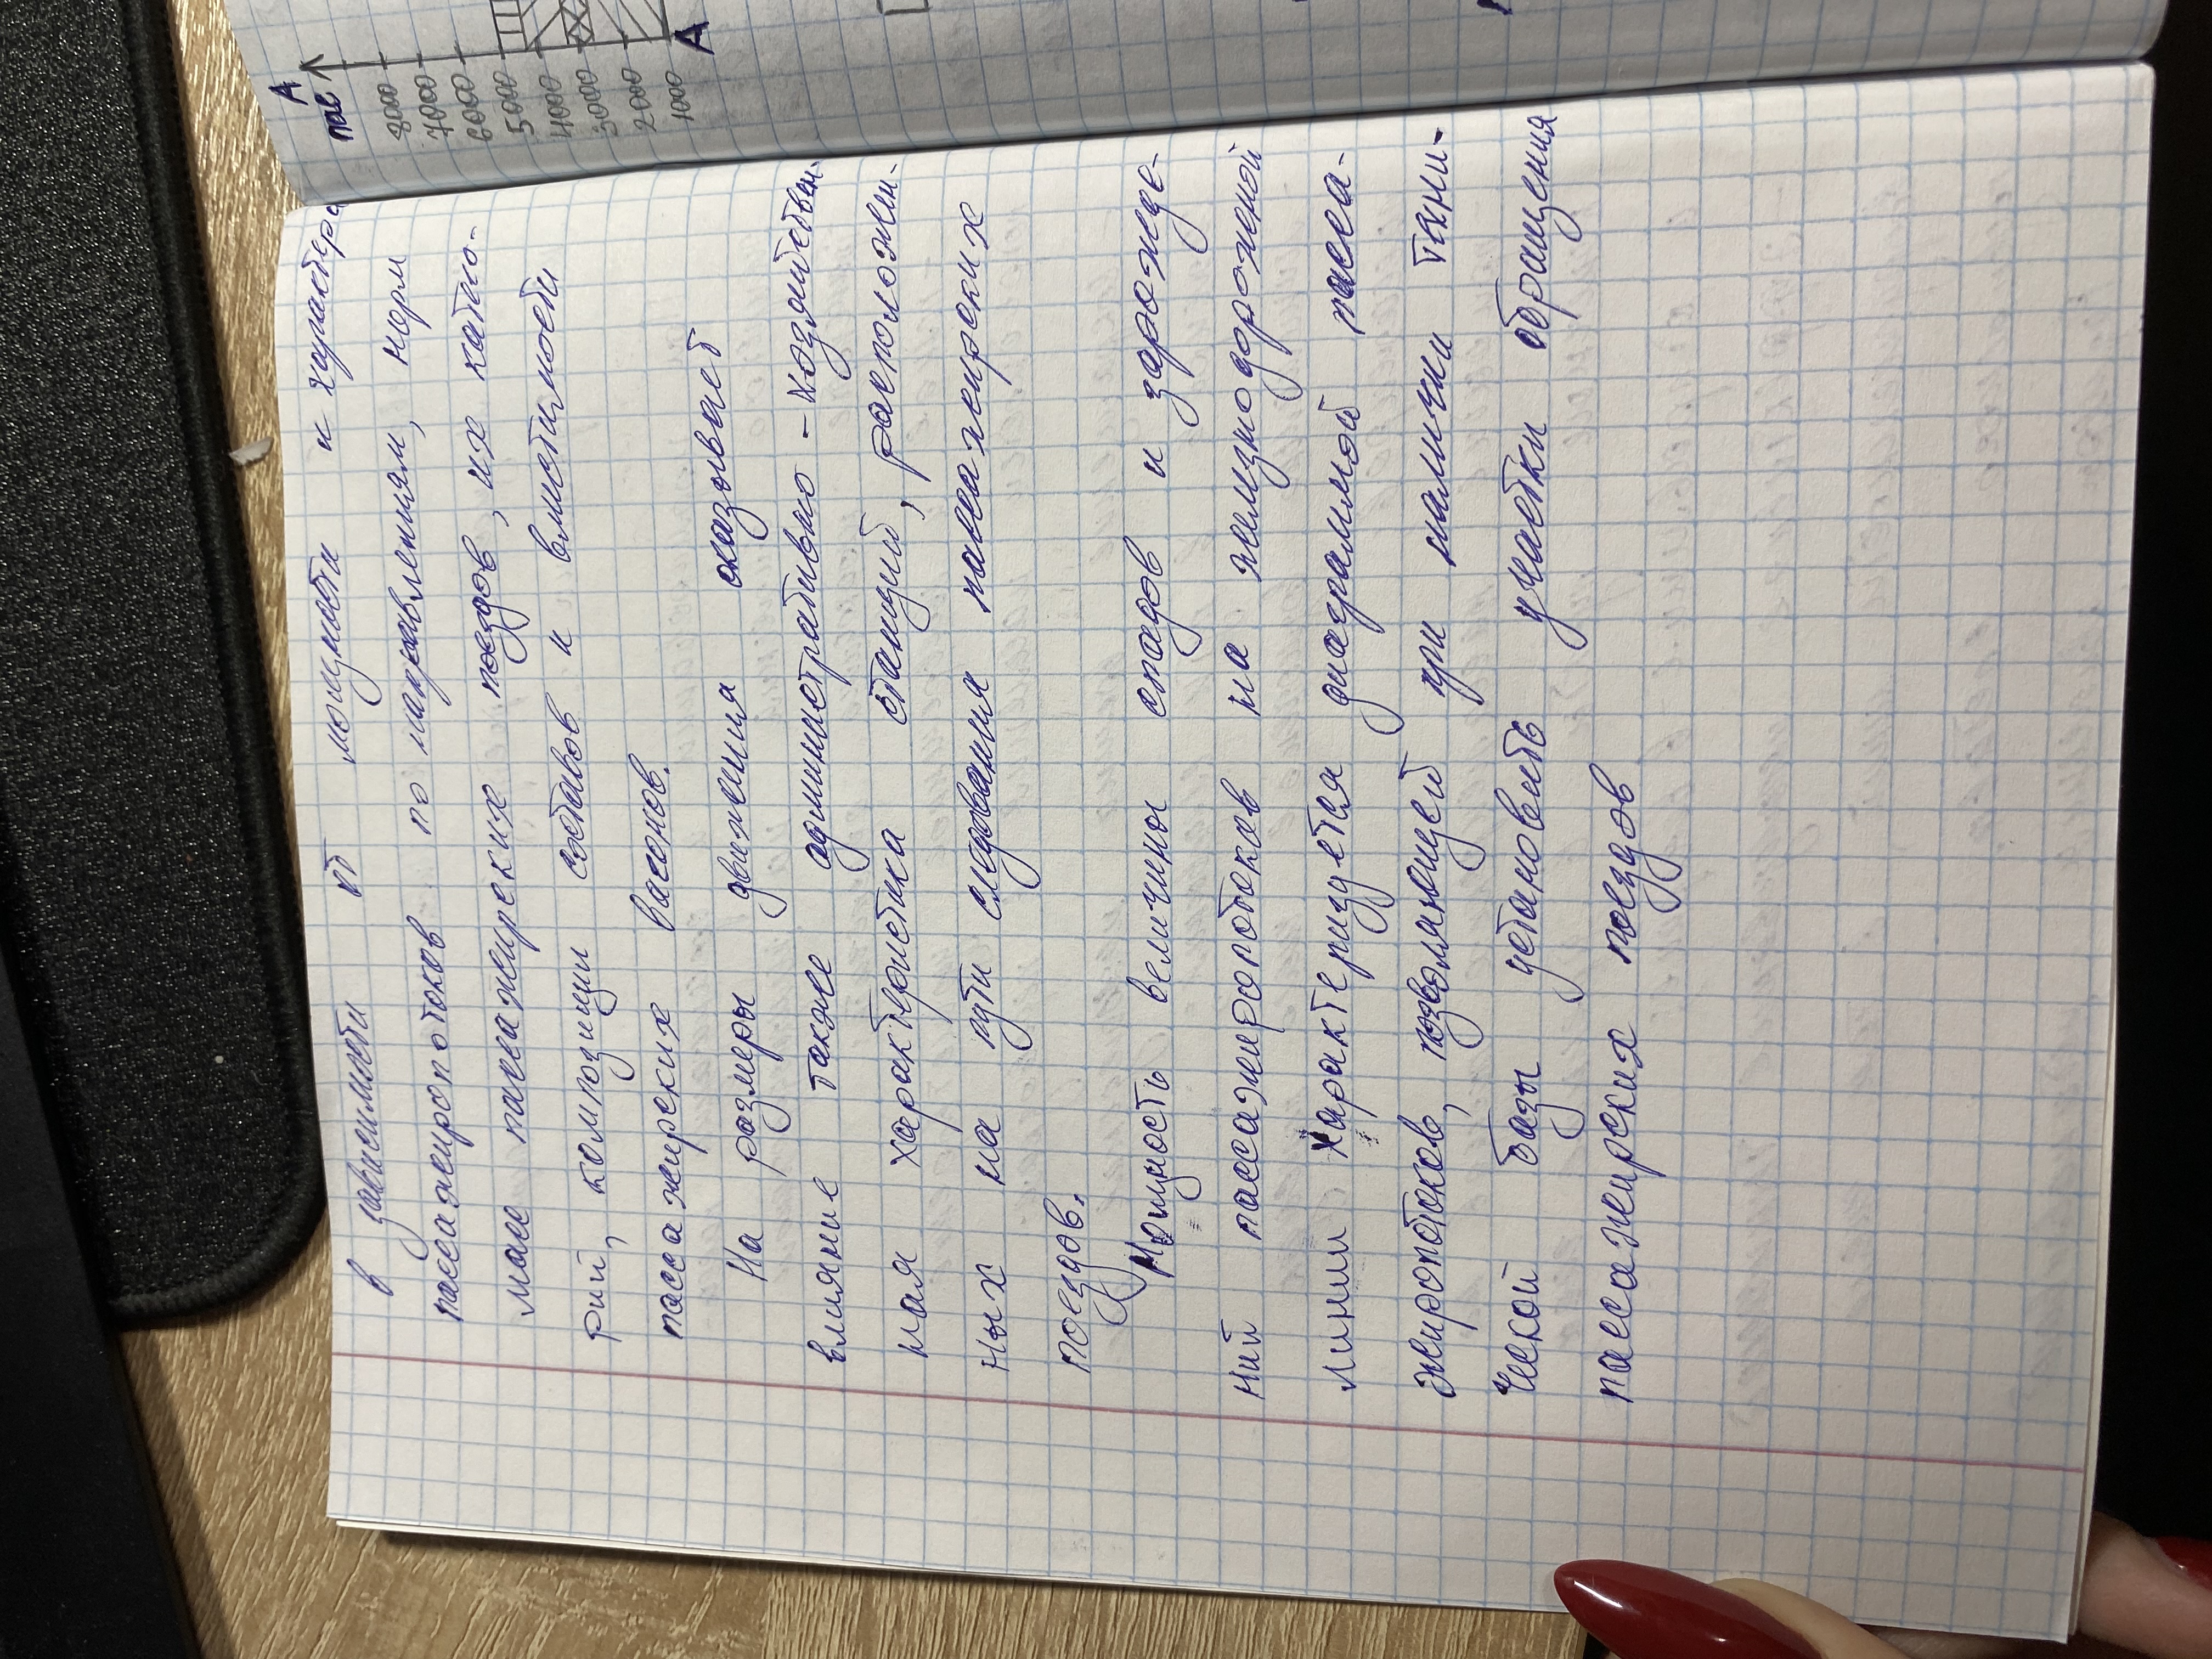 в зависимости от мощности и характера
пассажиропотоков по направлениям, норм
масс пассажирских поездов, их катно-
рий, композиции составов и вместимости
пассажирских вагонов.
На размеры движения оказывает
влияние также административно-хозяйствен.
ная характеристика станций, расположен-
ных на пути следования пассажирских
поездов.
Мощность величины спадов и зарожде-
ний пассажиропотоков на железнодорожной
линии характеризуется диаграммой пасса-
жиропотоков, позволяющей при наличии техни-
ческой базы установить участки обращения
пассажирских поездов
А
пас
8000
7000
6000
5000
4000
3000
2000
1000
А